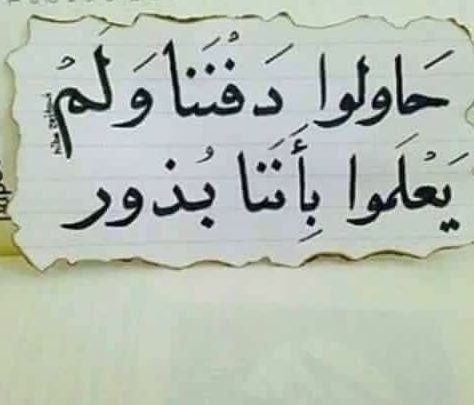 حَاولوا دَفْنَنا وَلَمْ
يَعْلَموا بِأَنَنا بُذور